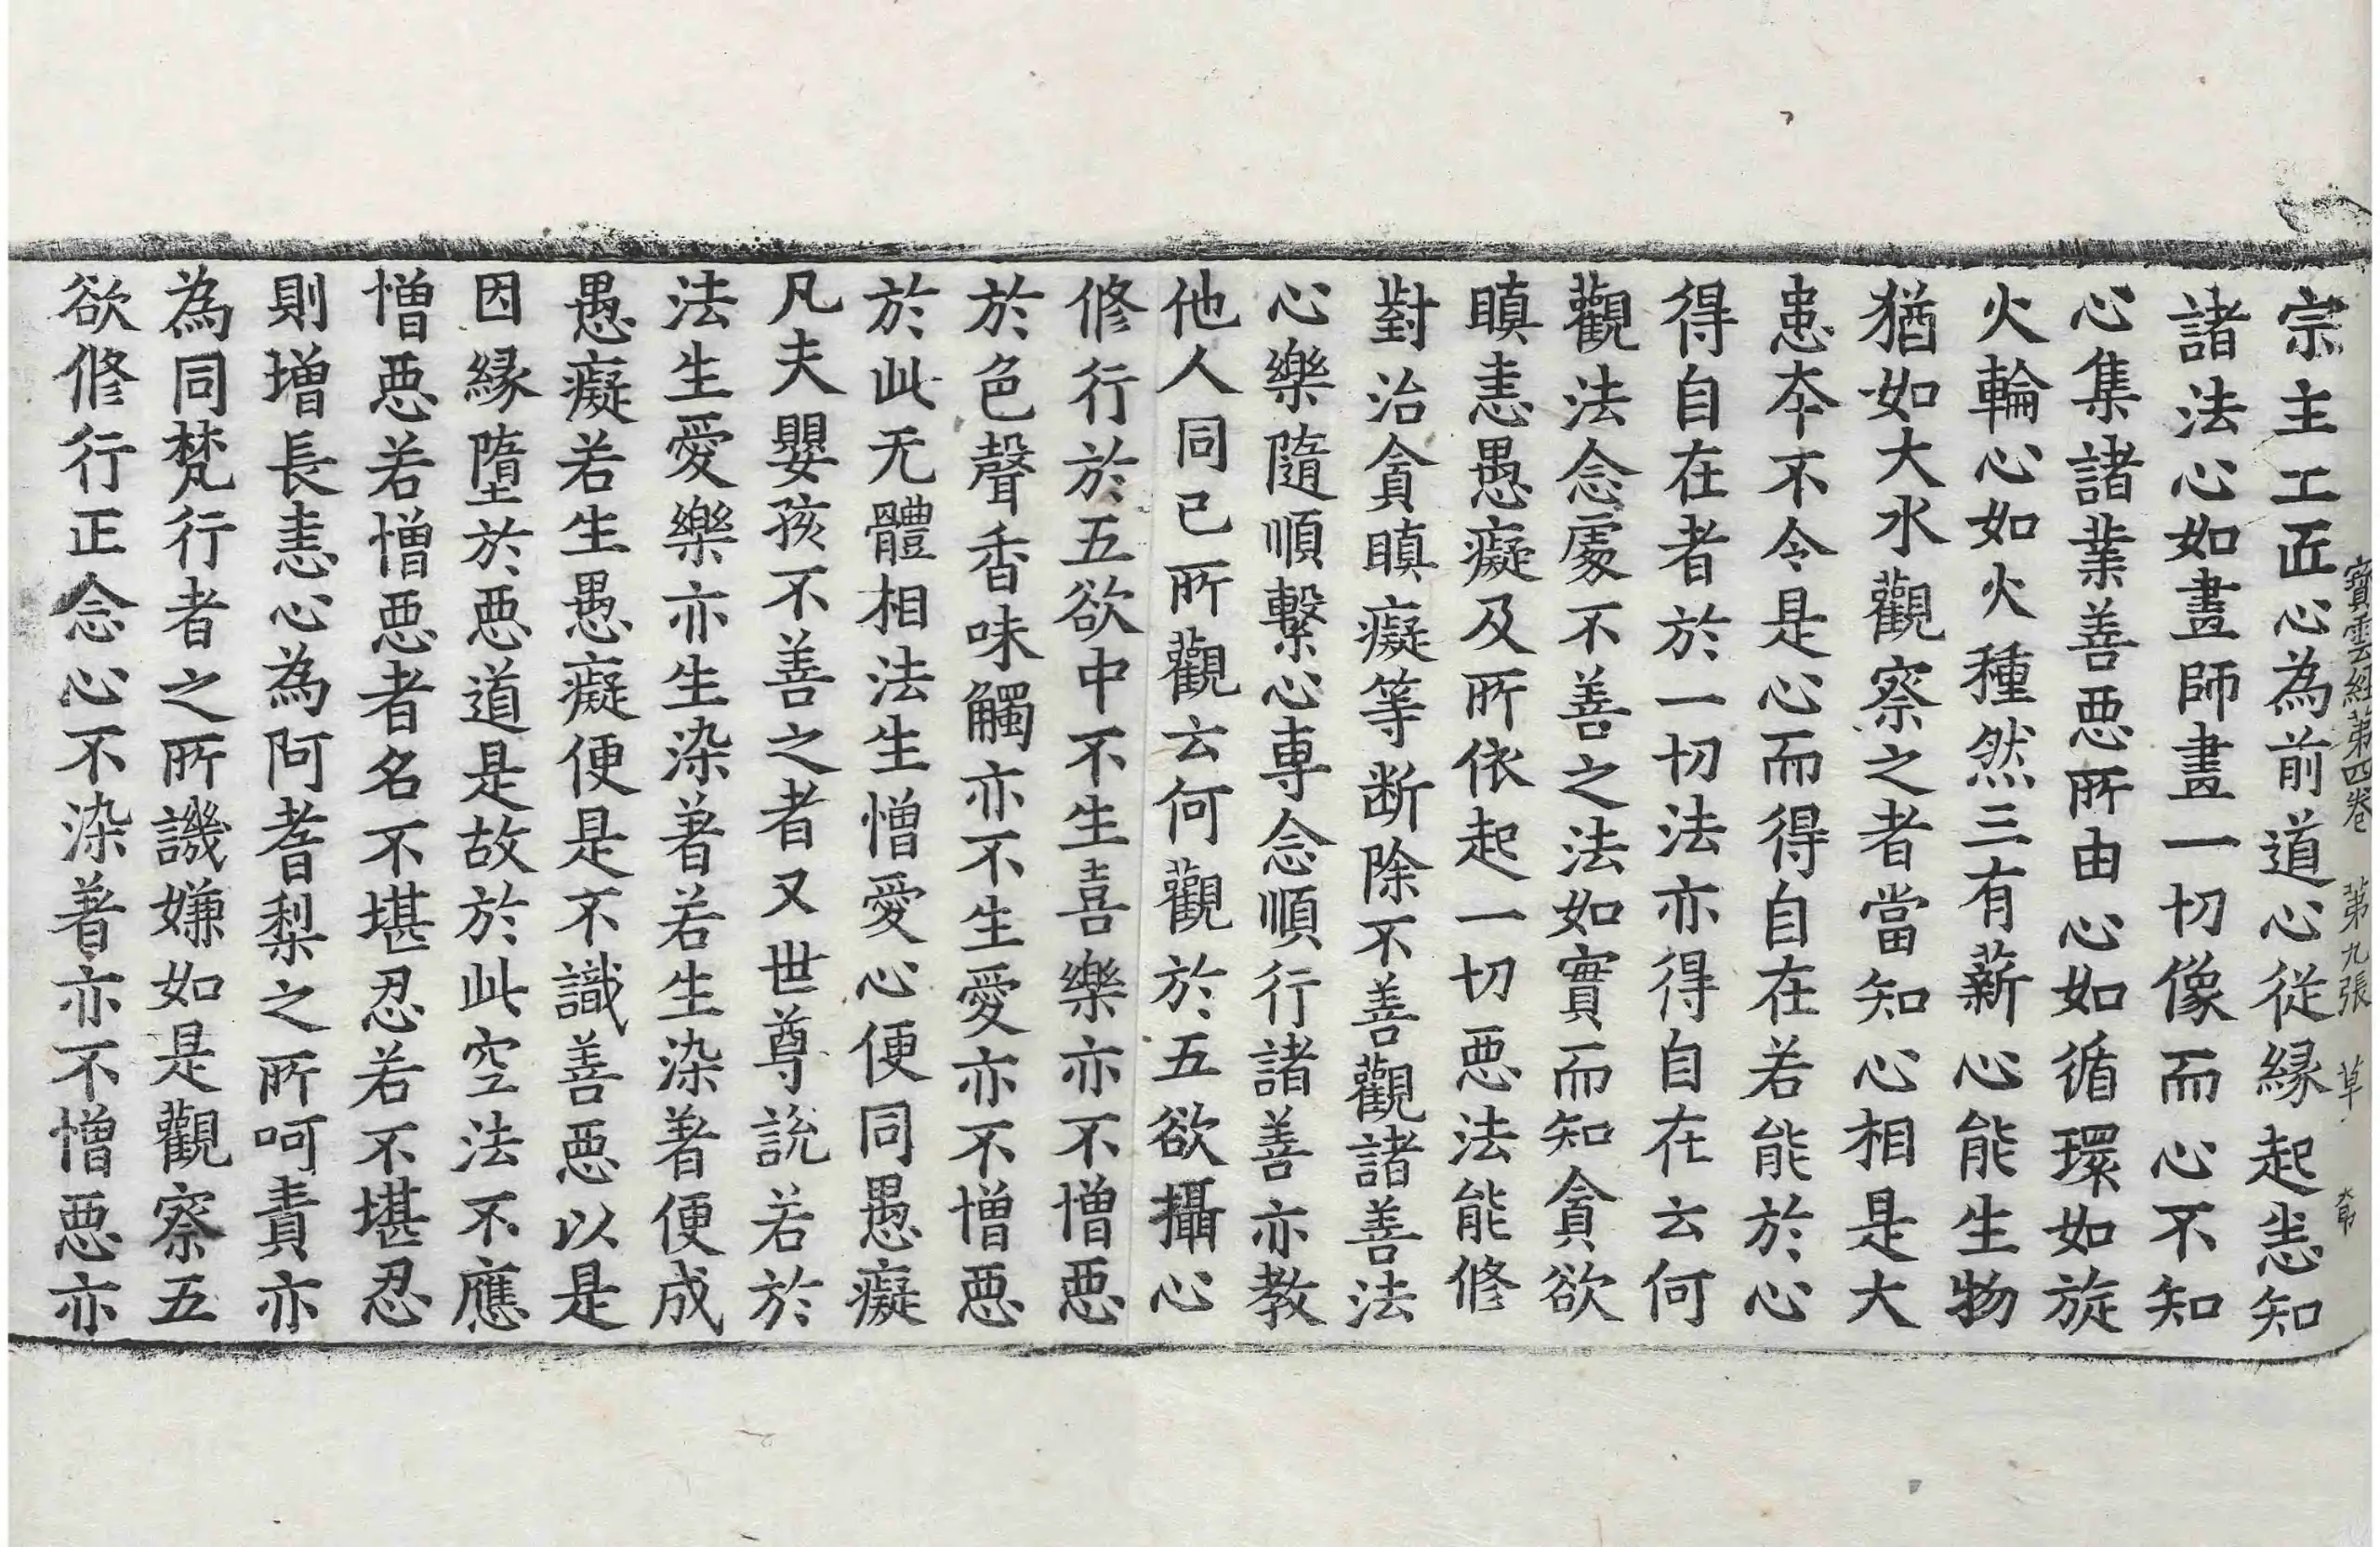 寶雲經第四卷 第九張 草
宗主工匠心為前道心從緣起恙知
諸法心如畫師畫一切像而心不知
心集諸業善惡所由心如循環如旋
火輪心如火種然三有薪心能生物
猶如大水觀察之者當知心相是大
患本不令是心而得自在若能於心
得自在者於一切法亦得自在云何
觀法念處不善之法如實而知貪欲
瞋恚愚癡及所依起一切惡法能修
對治貪瞋癡等断除不善觀諸善法
心樂隨順繫心專念順行諸善亦教
他人同已所觀云何觀於五欲攝心
修行於五欲中不生喜樂亦不憎惡
於色聲香味觸亦不生愛亦不憎惡
於此无體相法生憎愛心便同愚癡
凡夫嬰孩不善之者又世尊說若於
法生愛樂亦生染著若生染著便成
愚癡若生愚癡便是不識善惡以是
因緣墮於惡道是故於此空法不應
憎惡若憎惡者名不堪忍若不堪忍
則增長恚心為阿耆梨之所呵責亦
為同梵行者之所譏嫌如是觀察五
欲修行正念心不染著亦不憎惡亦